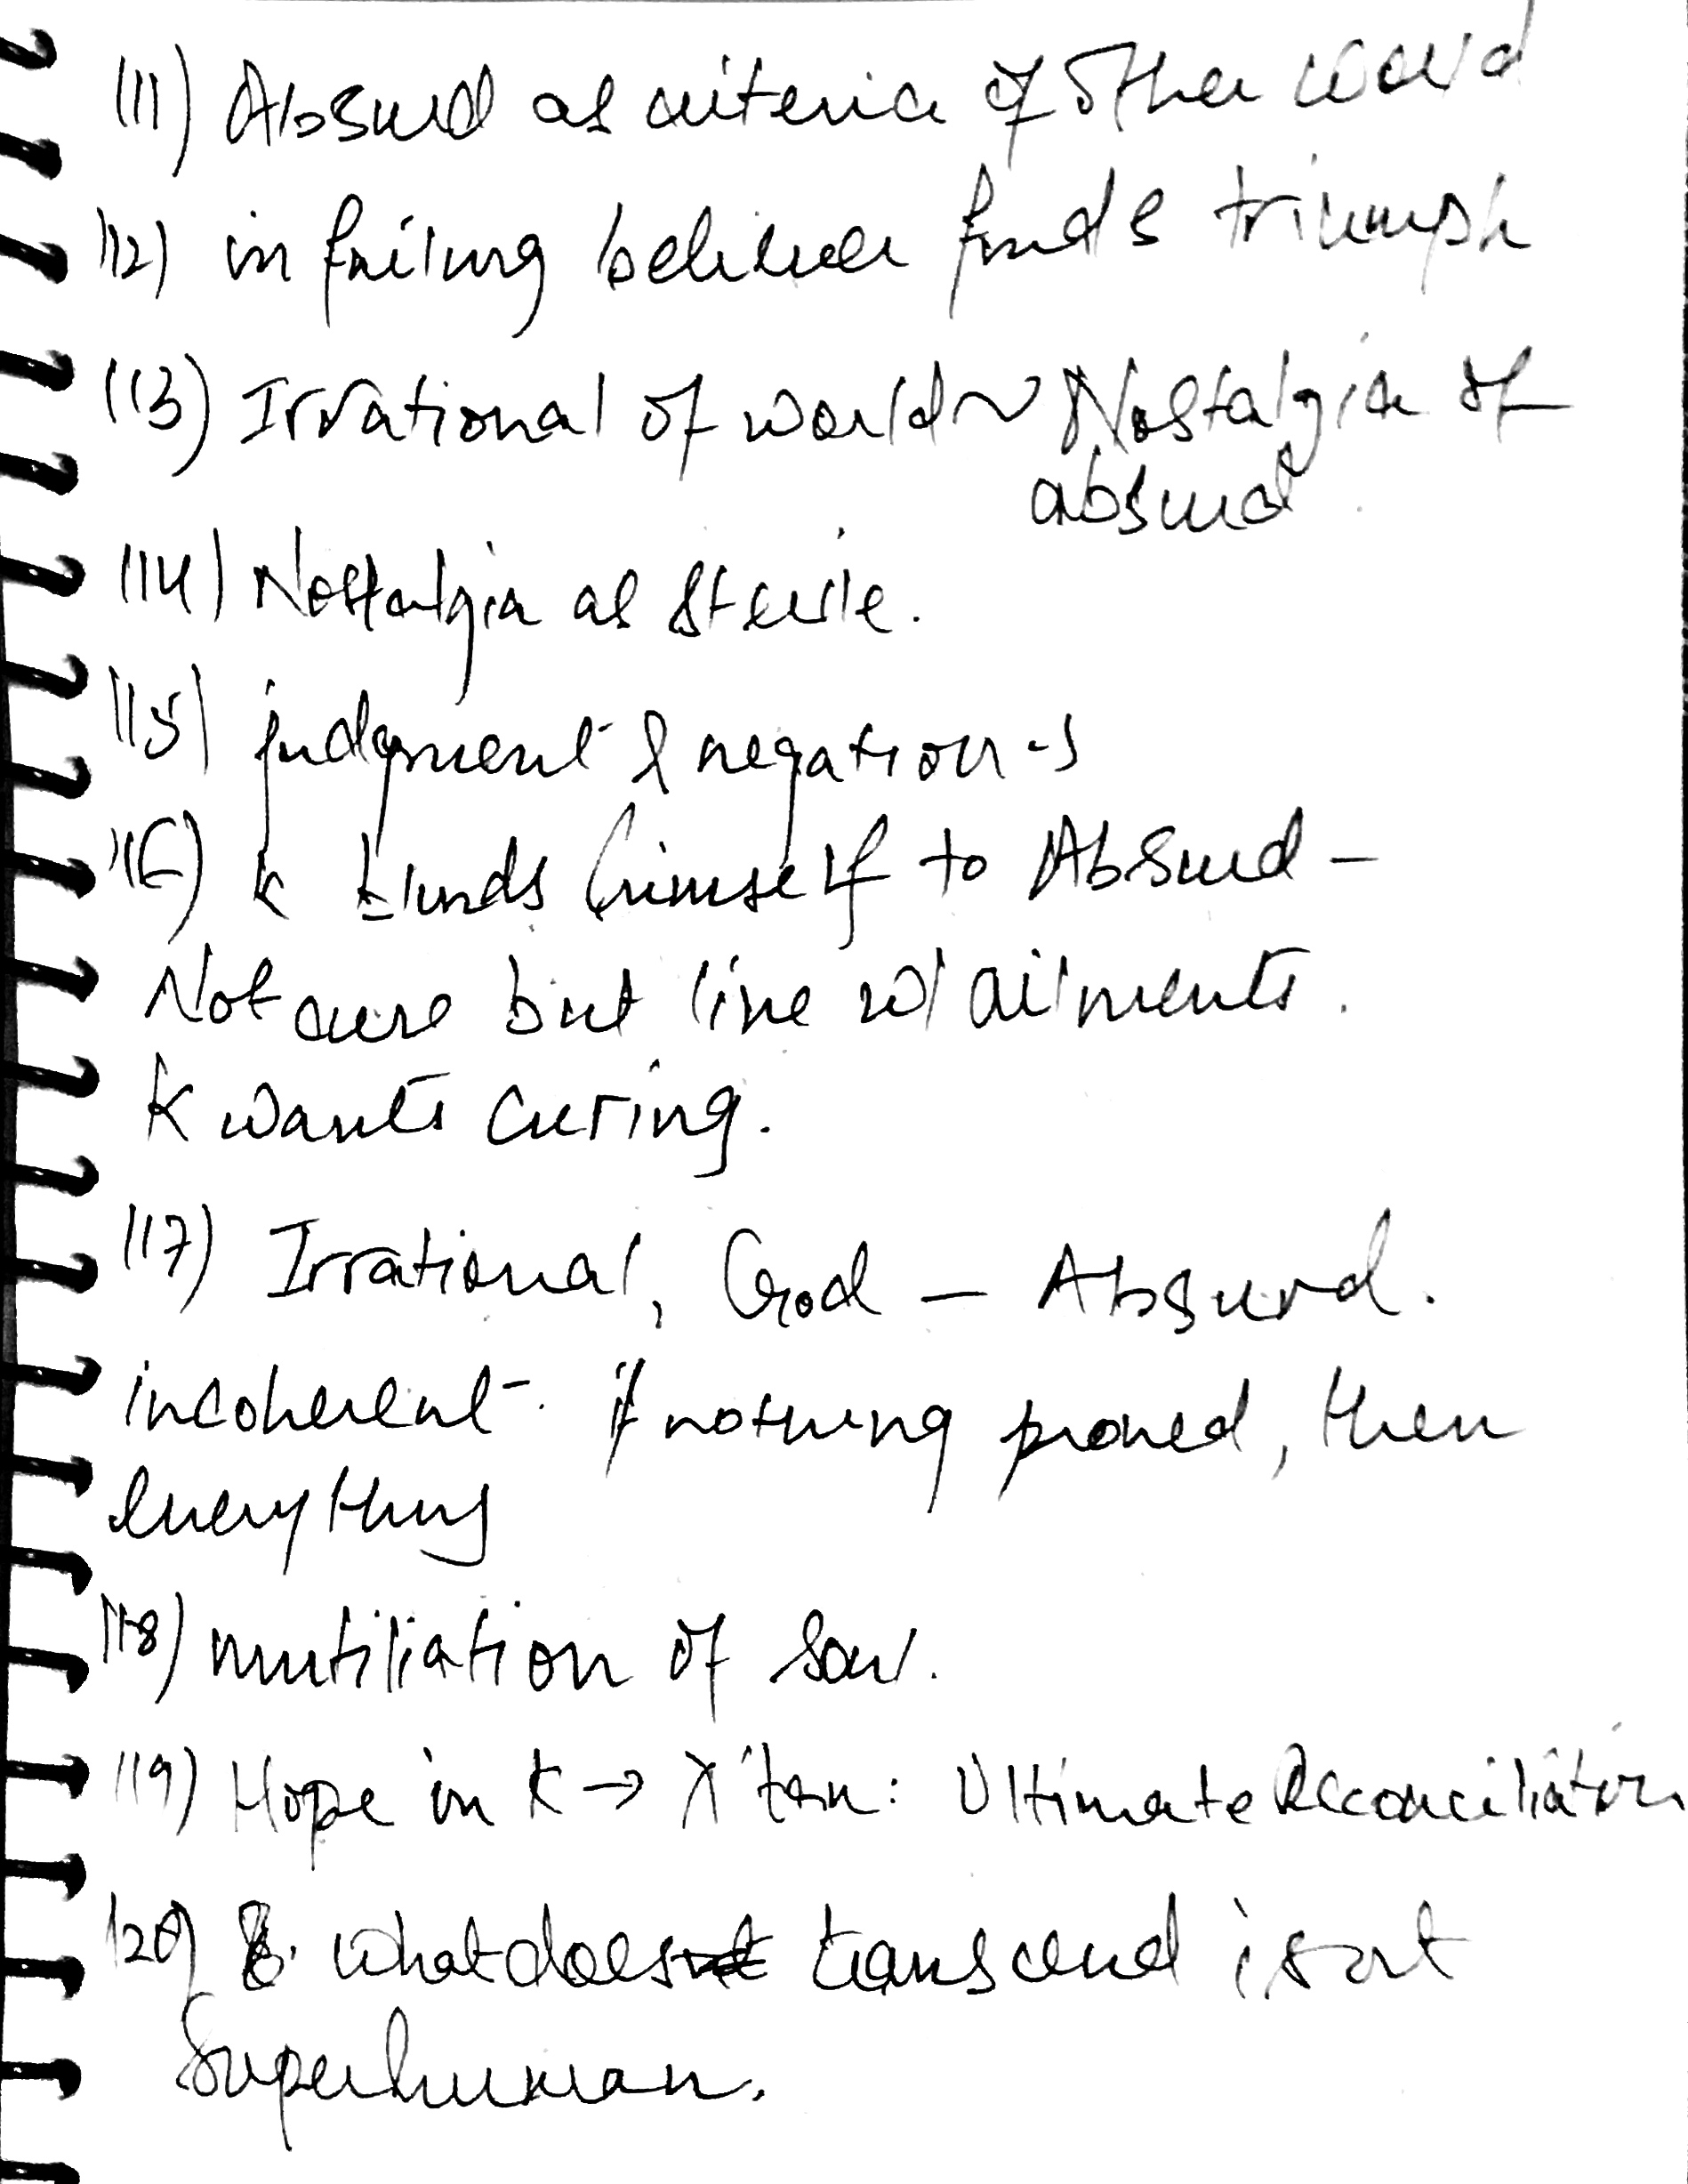 111) Absurd as criteria of other world
112) in failing believer finds triumph
113) Irrational of world ~ Nostalgia of
absurd.
114) Nostalgia as sterile.
115) judgment & negation -s
116) K blinds himself to Absurd -
Not cure but live w/ ailments.
K wants curing.
117) Irrational, God - Absurd.
incoherent. if nothing proved, then
everything
118) mutiliation of soul.
119) Hope in K → X'tan: Ultimate Reconciliation
120) what does transcend is not
Superhuman.